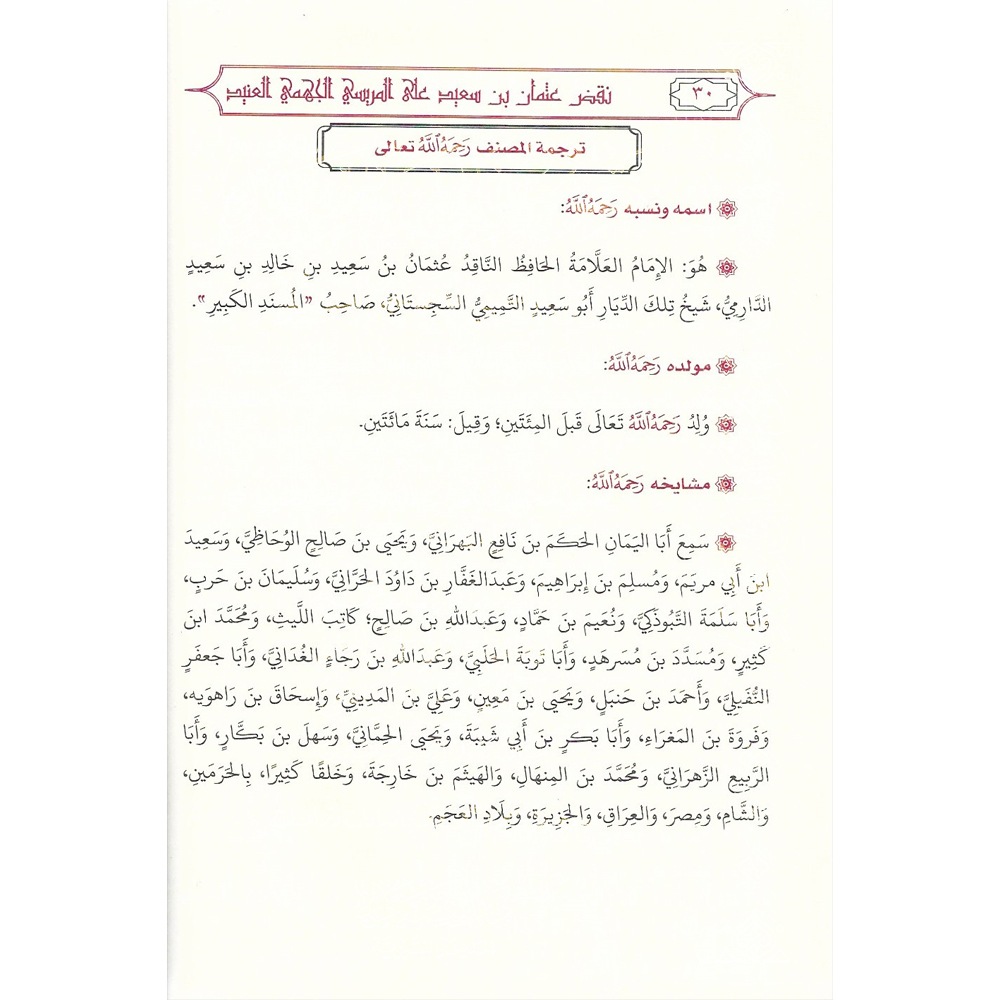 ٣٠
نقض عثمان بن سعيد على المريسي الجهمي العنيد
ترجمة المصنف رَحِمَهُ ٱللَّهُ تعالى
اسمه ونسبه رَحِمَهُ ٱللَّهُ:
هُوَ: الإِمَامُ العَلَّامَةُ الحَافِظُ النَّاقِدُ عُثمَانُ بنُ سَعِيدِ بنِ خَالِدِ بنِ سَعِيدٍ
الدَّارِمِيُّ، شَيخُ تِلكَ الدِّيَارِ أَبُو سَعِيدٍ التَّمِيمِيُّ السِّجِستَانِيُّ، صَاحِبُ "المُسنَدِ الكَبِيرِ".
مولده رَحِمَهُ ٱللَّهُ:
وُلِدَ رَحِمَهُ ٱللَّهُ تَعَالَى قَبلَ المِئَتَينِ؛ وَقِيلَ: سَنَةَ مَائَتَينِ.
مشايخه رَحِمَهُ ٱللَّهُ:
سَمِعَ أَبَا اليَمَانِ الحَكَمَ بنَ نَافِعٍ البَهرَانِيَّ، وَيَحيَى بنَ صَالِحٍ الوُحَاظِيَّ، وَسَعِيدَ
ابنَ أَبِي مريَمَ، وَمُسلِمَ بنَ إِبرَاهِيمَ، وَعَبدَالغَفَّارِ بنَ دَاوُدَ الحَرَّانِيَّ، وَسُلَيمَانَ بنَ حَربٍ،
وَأَبَا سَلَمَةَ التَّبُوذَكِيَّ، وَنُعَيمَ بنَ حَمَّادٍ، وَعَبدَاللهِ بنَ صَالِحٍ؛ كَاتِبَ اللَّيثِ، وَمُحَمَّدَ ابنَ
كَثِيرٍ، وَمُسَدَّدَ بنَ مُسَرهَدٍ، وَأَبَا تَوبَةَ الحَلَبِيَّ، وَعَبدَاللهِ بنَ رَجَاءٍ الغُدَانِيَّ، وَأَبَا جَعفَرٍ
النُّفَيلِيَّ، وَأَحمَدَ بنَ حَنبَلٍ، وَيَحيَى بنَ مَعِينٍ، وَعَلِيَّ بنَ المَدِينِيِّ، وَإِسحَاقَ بنَ رَاهَويَه،
وَفَروَةَ بنَ المَغرَاءِ، وَأَبَا بَكرِ بنَ أَبِي شَيبَةَ، وَيَحيَى الحِمَّانِيَّ، وَسَهلَ بنَ بَكَّارٍ، وَأَبَا
الرَّبِيعِ الزَّهرَانِيَّ، وَمُحَمَّدَ بنَ المِنهَالِ، وَالهَيثَمَ بنَ خَارِجَةَ، وَخَلقًا كَثِيرًا، بِالحَرَمَينِ،
وَالشَّامِ، وَمِصرَ، وَالعِرَاقِ، وَالجَزِيرَةِ، وَبِلَادِ العَجَمِ.